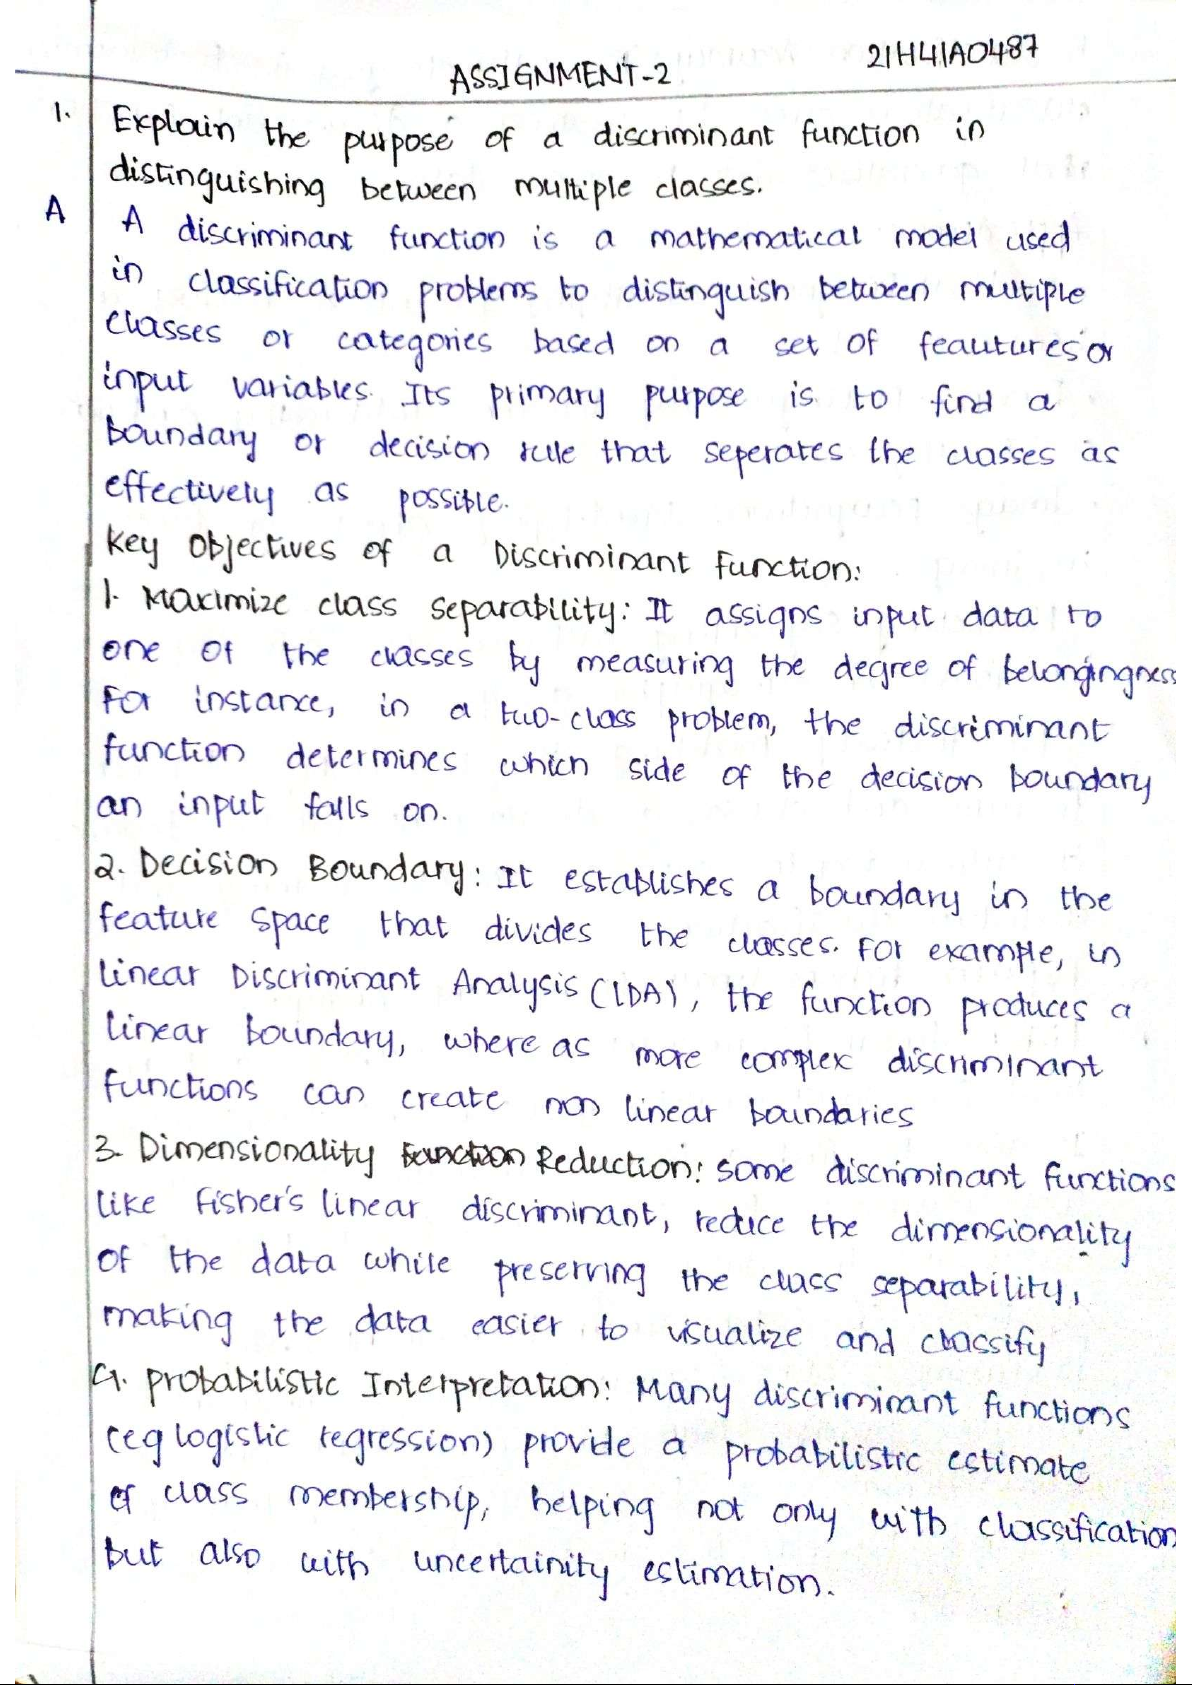 21H41A0487
ASSIGNMENT-2
1. Explain the purpose of a discriminant function in
distinguishing between multiple classes.
A A discriminant function is a mathematical model used
in classification problems to distinguish between multiple
classes or categories based on a set of feautures or
input variables. Its primary purpose is to find a
boundary or decision rule that seperates the classes as
effectively as possible.
Key Objectives of a Discriminant Function:
1. Maximize class separability: It assigns input data to
one of the classes by measuring the degree of belongingness
For instance, in a two-class problem, the discriminant
function determines which side of the decision boundary
an input falls on.
2. Decision Boundary: It establishes a boundary in the
feature space that divides the classes. For example, in
linear Discriminant Analysis (LDA), the function produces a
linear boundary, where as more complex discriminant
functions can create non linear boundaries
3. Dimensionality Function Reduction: Some discriminant functions
like Fisher's linear discriminant, reduce the dimensionality
of the data while preserving the class separability,
making the data easier to visualize and classify
4. Probabilistic Interpretation: Many discriminant functions
(eg logistic regression) provide a probabilistic estimate
of class membership, helping not only with classification
but also with uncertainity estimation.